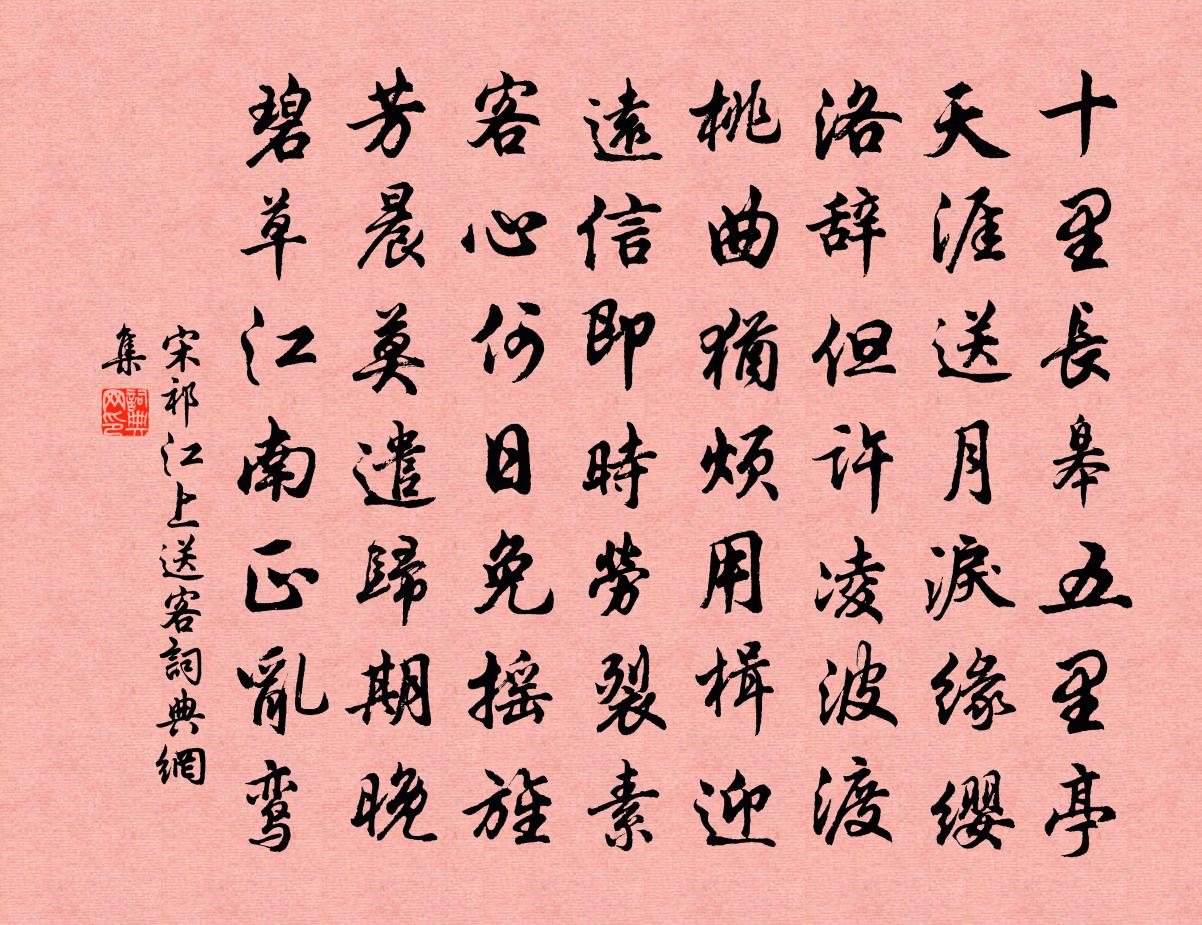 十里長皋五里亭
天涯送月淚緣纓
洛辞但许凌波渡
桃曲猶烦用楫迎
遠信即時勞裂素
客心何日免摇旌
芳晨莫遣歸期晚
碧草江南正亂鸾
宋祁江上送客詞典網
集
詞典
网印